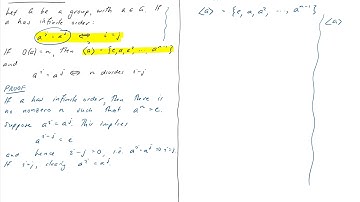 Let G be a group, with a ∈ G. If
a has infinite order:
aⁱ = aʲ ⇔ i = j
If O(a) = n, then ⟨a⟩ = {e, a, a², ..., aⁿ⁻¹}
and
aⁱ = aʲ ⇔ n divides i-j
PROOF
If a has infinite order, then there is
no nonzero n such that aⁿ = e.
Suppose aⁱ = aʲ. This implies
aⁱ⁻ʲ = e
and hence i-j = 0, i.e. aⁱ = aʲ ⇒ i=j.
If i=j, clearly aⁱ = aʲ.
⟨a⟩ = {e, a, a², ..., aⁿ⁻¹}
⟨a⟩